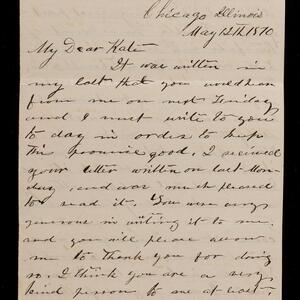 Chicago Illinois
May 12th 1870
My Dear Kate
It was written in
my last that you would hear
from me on next Tuesday
and I must write to you
to day in order to keep
the promise good. I received
your letter written on last Mon-
day, and was much pleased
to read it. You were very
generous in writing it to me
and you will please allow
me to thank you for doing
so. I think you are a very
kind person to me at least,